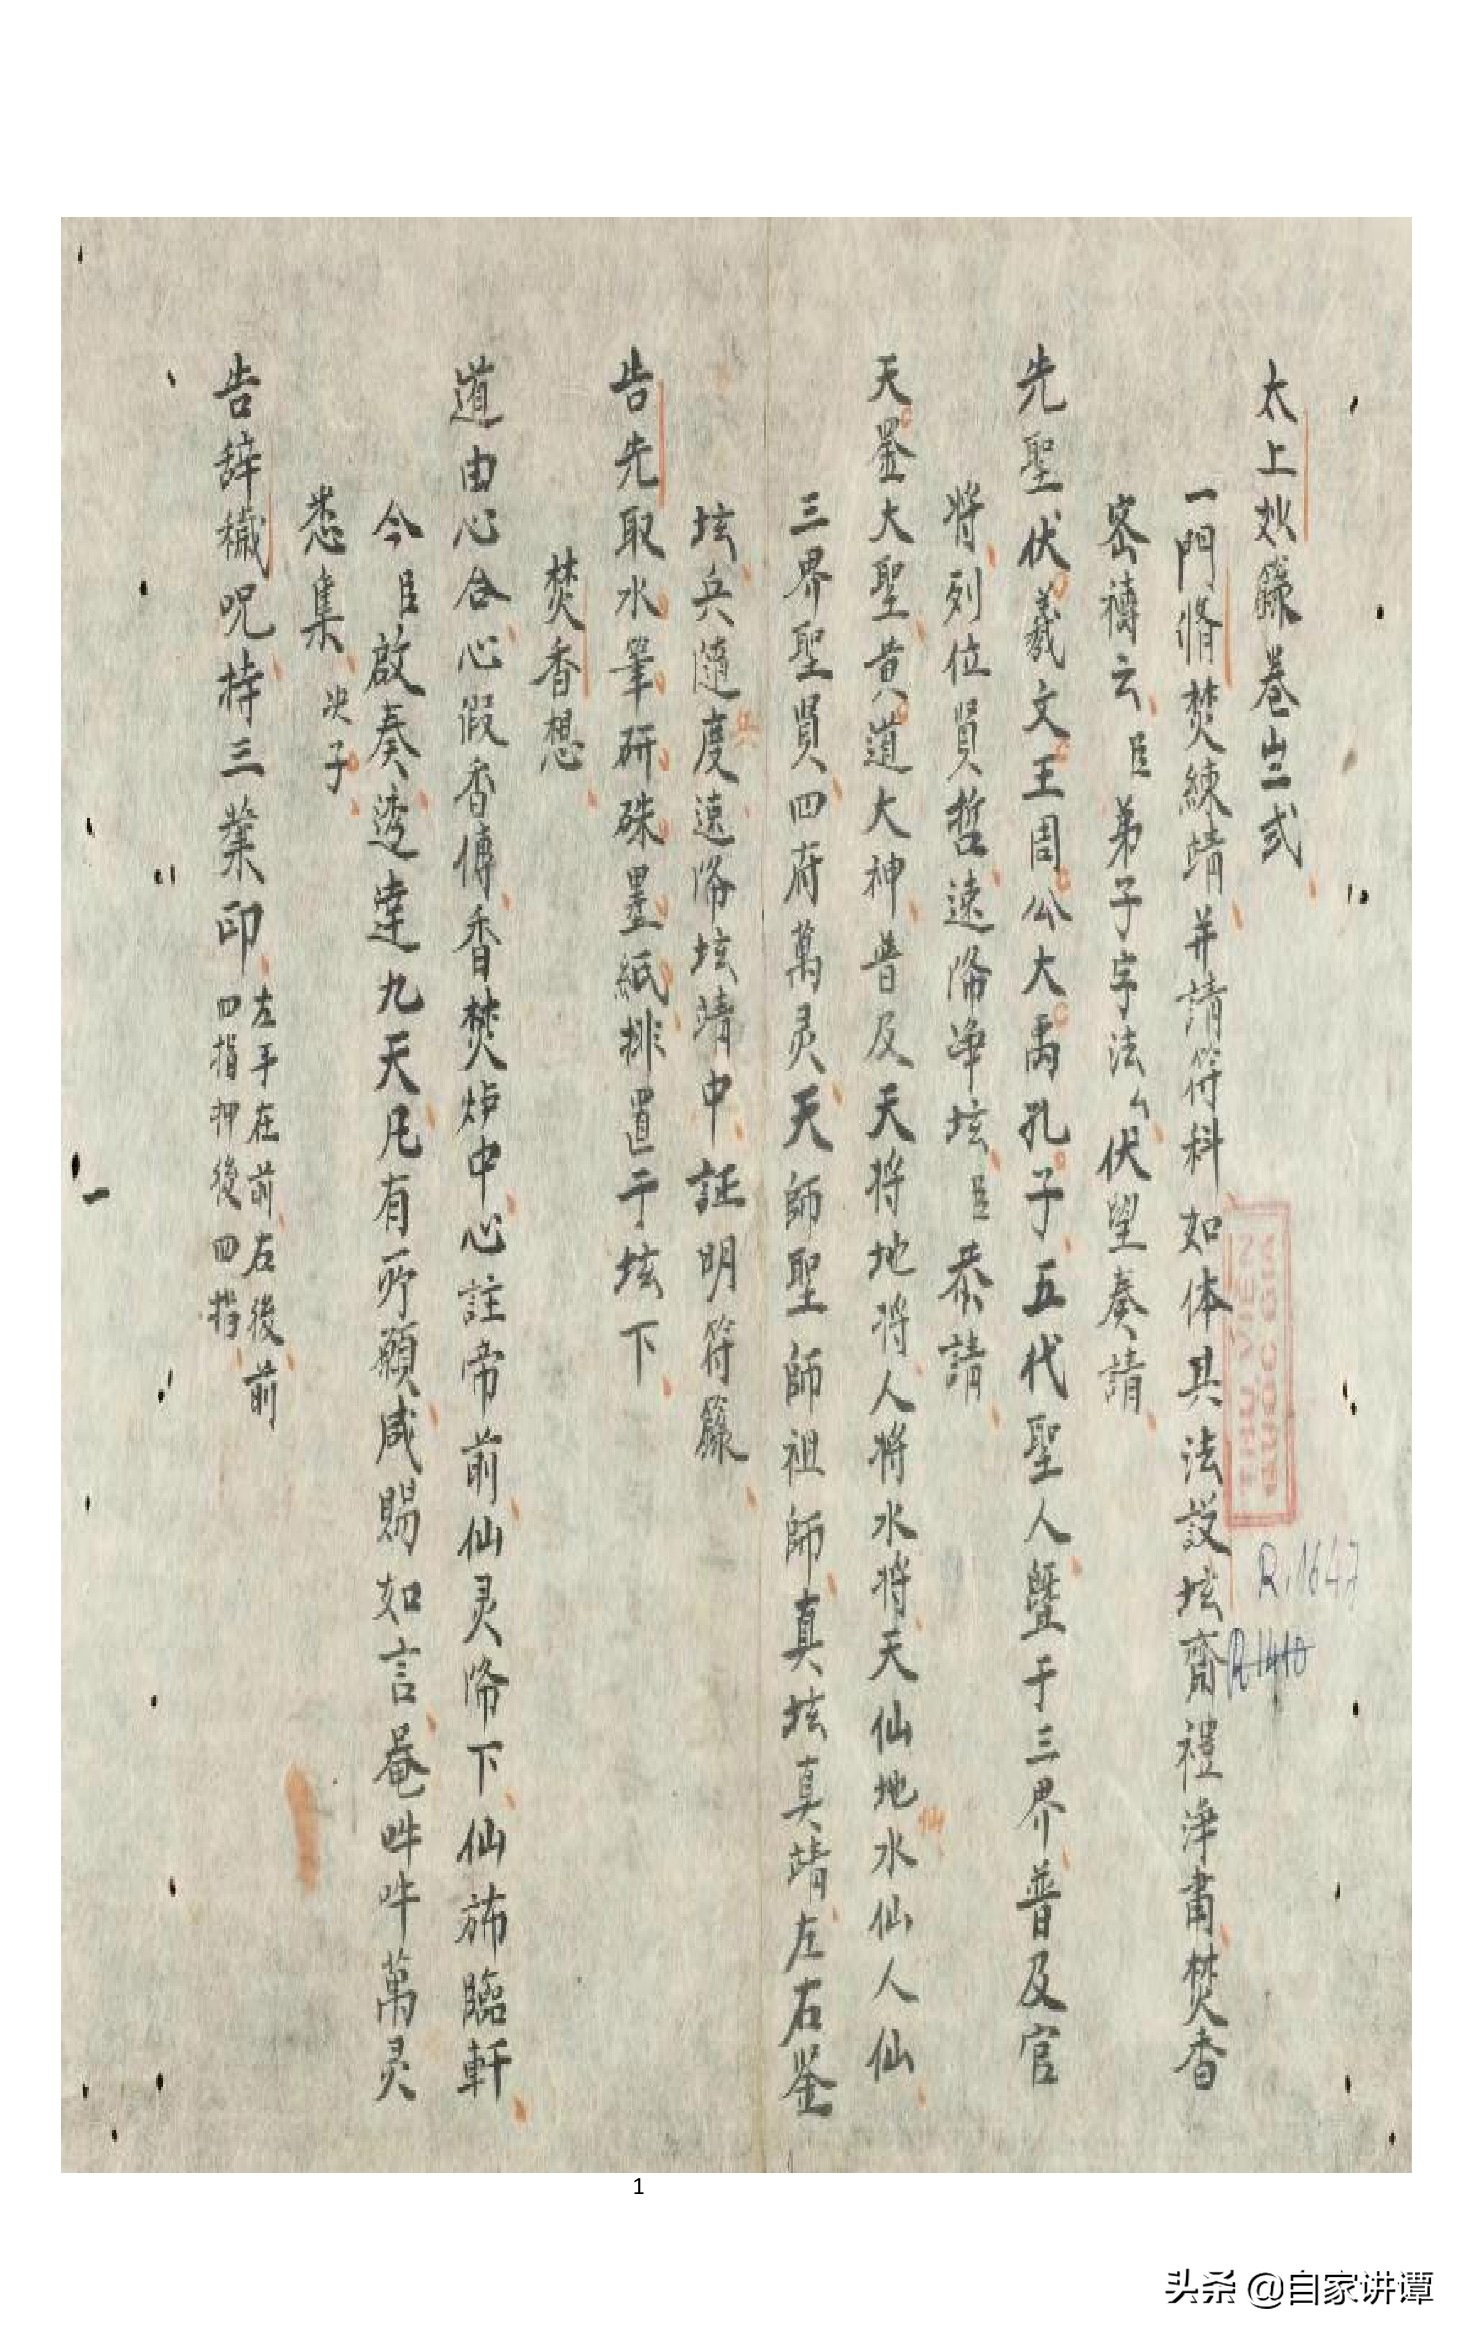 太上妙籙卷之弍
一門將焚練靖并請符科如体其法設坛齋禮淨肅焚香
密禱云臣弟子字法厶伏望奏請
先聖伏羲文王周公大禹孔子五代聖人曁于三界普及官
將列位賢哲遠降净坛臣恭請
天罡大聖黄道大神普及天将地将人将水将天仙地水仙人仙
仙
三界聖賢四府萬灵天師聖師祖師真坛真靖左右鉴
坛兵隨度遠降坛靖中証明符籙
兵
告先取水筆硏硃墨紙排置于坛下
焚香想
道由心合心假香傳香焚炉中心註帝前仙灵降下仙斾臨軒
今臣啟奏逵達九天凡有所願咸賜如言唵吽吽萬灵
悉集决子
告辞穢呪持三業印左手在前右後前
四指押後四指
一
THU VIEN
R.1647
R1410
1
头条 @自家讲谭